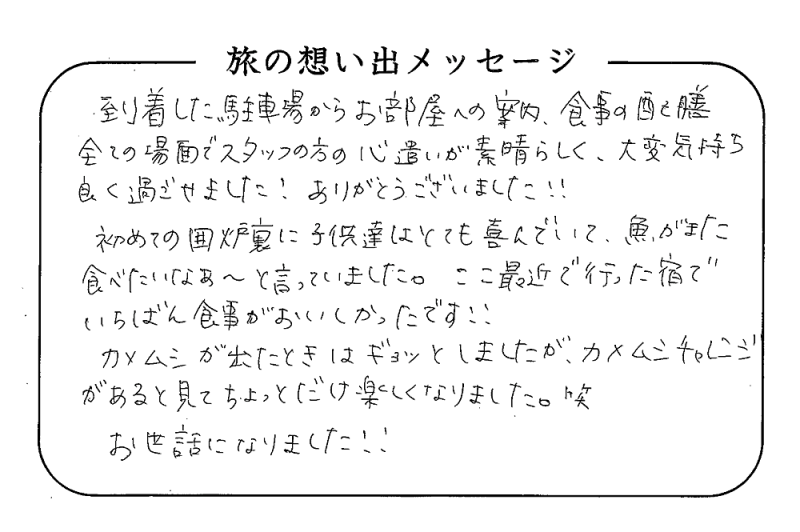 旅の想い出メッセージ
到着した駐車場からお部屋への案内、食事の配て膳
全ての場面でスタッフの方の心遣いが素晴らしく、大変気持ち
良く過ごせました！ ありがとうございました!!
初めての囲炉裏に子供達はとても喜んでいて、魚がまた
食べたいなぁ〜と言っていました。 ここ最近で行った宿で
いちばん食事がおいしかったです!!
カメムシが出たときはギョッとしましたが、カメムシチャレンジ
があると見てちょっとだけ楽しくなりました。笑
お世話になりました!!